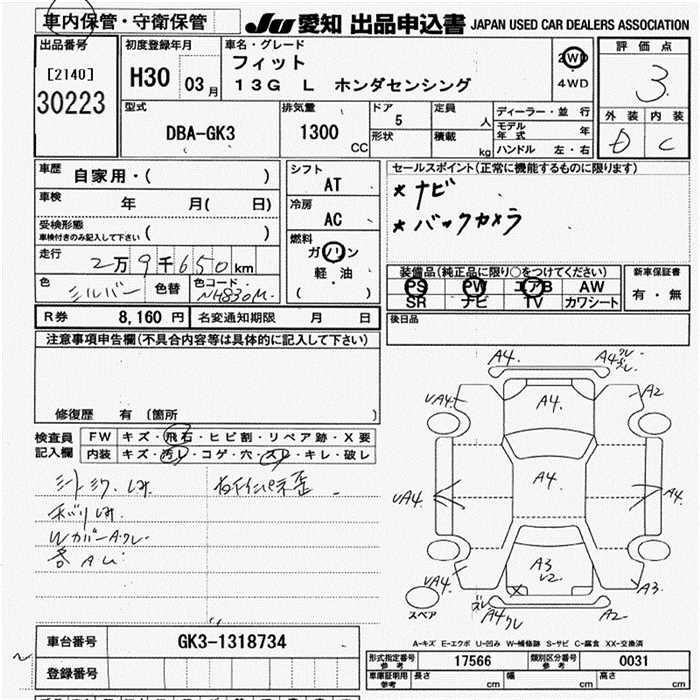 車内保管・守衛保管
JU 愛知 出品申込書 JAPAN USED CAR DEALERS ASSOCIATION
出品番号
[2140]
30223
初度登録年月
H30 03月
車名・グレード
フィット
13G L ホンダセンシング
2WD
4WD
評価点
3
外装 内装
D C
型式
DBA-GK3
排気量
1300
CC
ドア
5
形状
定員
人
積載
kg
ディーラー・並行
モデル年式 年
ハンドル 左・右
車歴
自家用・( )
車検
年 月( 日)
受検形態
車検付きのみ記入して下さい ( )
走行
2万9千650km
色
シルバー
色替
色コード
NH830M
シフト
AT
冷房
AC
燃料
ガソリン
軽・油
( )
セールスポイント(正常に機能するものに限ります)
* ナビ
* バックカメラ
装備品(純正品に限り○をつけてください)
PS PW エアB AW
SR ナビ TV カワシート
新車保証書
有・無
R券 8,160 円
名変通知期限 月 日
後日品
注意事項申告欄(不具合内容等は具体的に記入して下さい)
修復歴 有 〔箇所 〕
検査員
記入欄
FW キズ・飛石・ヒビ割・リペア跡・X要
内装 キズ・汚レ・コゲ・穴・スレ・キレ・破レ
WカバーA.クレ
各AU
A4. A4 クレ ズレ
UA4 A4. A2
UA4 A4. A4.
UA4 A3 U2 A3
ズレ A4 クレ A2
スペア
A-キズ E-エクボ U-凹み W-補修跡 S-サビ C-腐食 XX-交換済
車台番号 GK3-1318734
登録番号
型式指定番号 参考 17566
類別区分番号 参考 0031
車庫証明用 参考 長さ cm 幅 cm 高さ cm